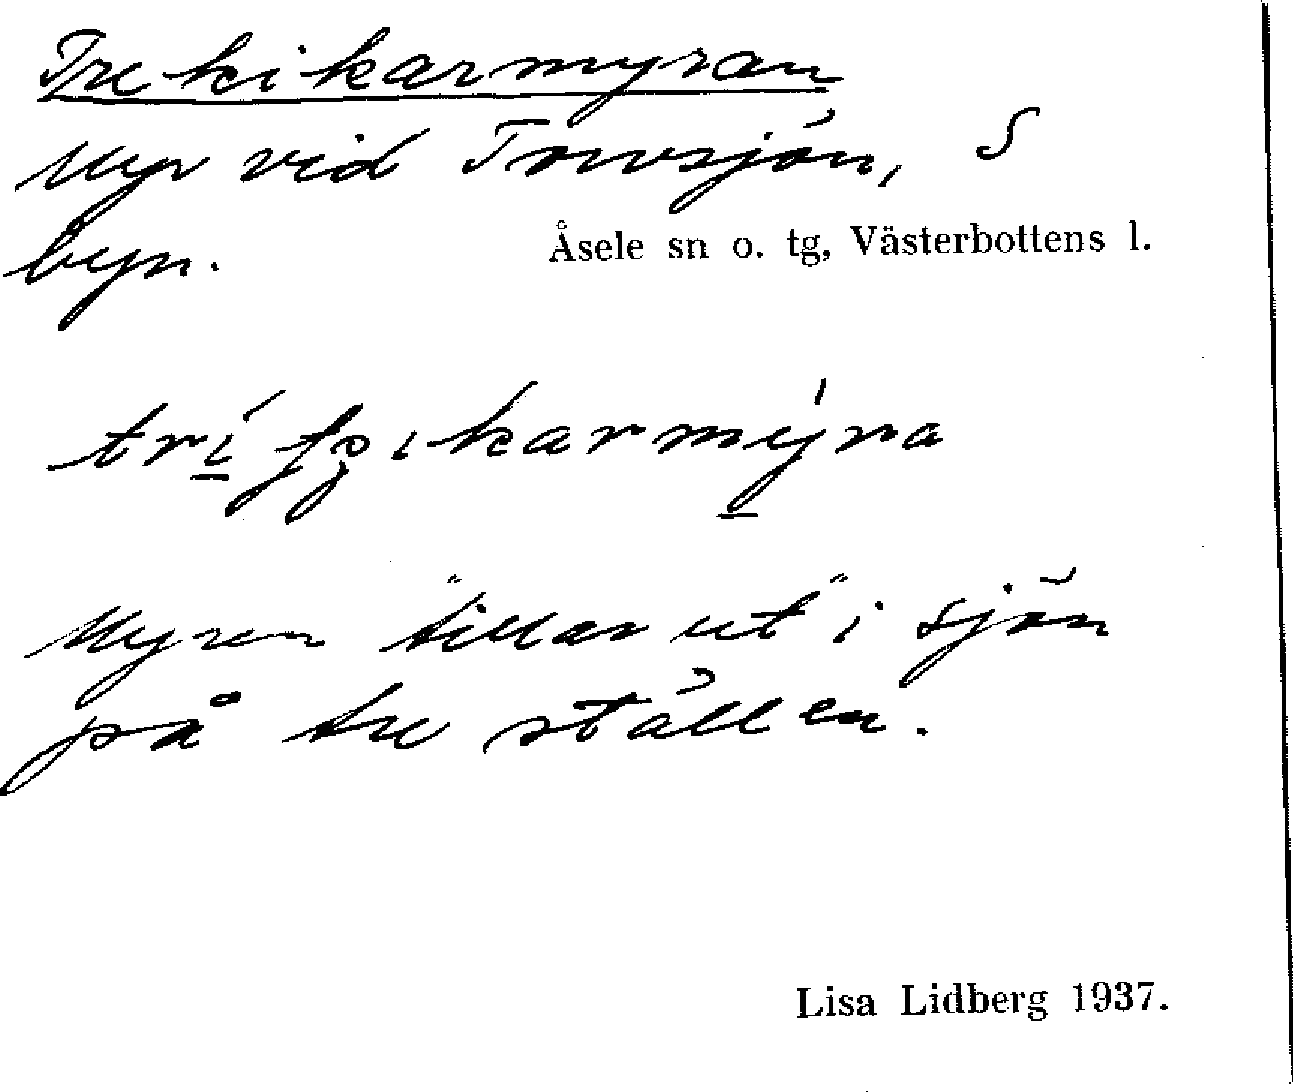 Trekikarmyran
Myr vid Torvsjön, S
byn.
Åsele sn o. tg, Västerbottens l.
Myren "tittar ut" i sjön
på tre ställen.
Lisa Lidberg 1937.